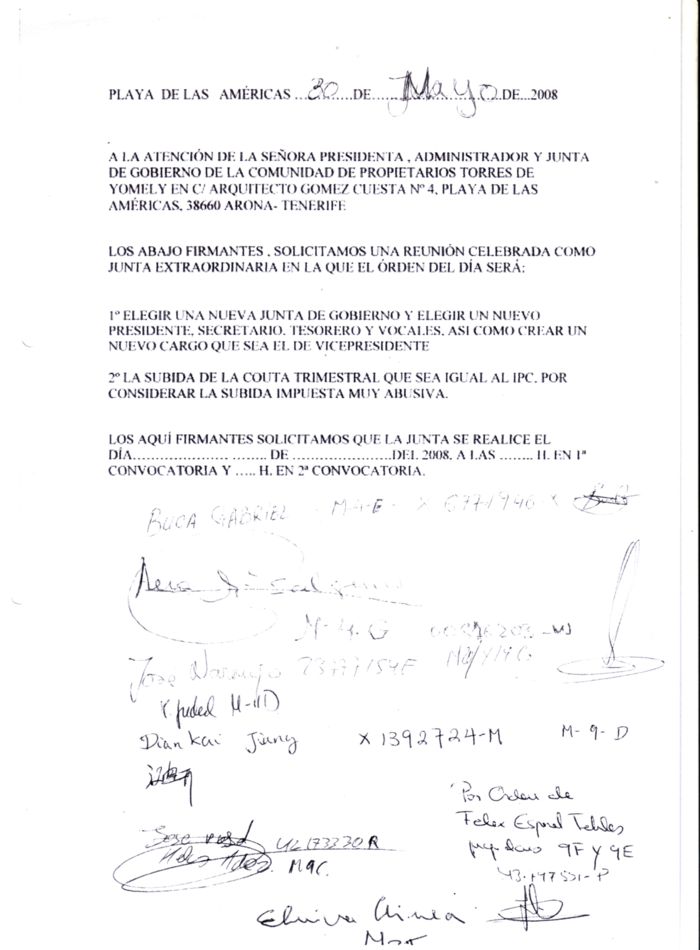 PLAYA DE LAS AMÉRICAS ...30.....DE......Mayo.DE...2008
A LA ATENCIÓN DE LA SEÑORA PRESIDENTA , ADMINISTRADOR Y JUNTA
DE GOBIERNO DE LA COMUNIDAD DE PROPIETARIOS TORRES DE
YOMELY EN C/ ARQUITECTO GOMEZ CUESTA Nº 4, PLAYA DE LAS
AMÉRICAS, 38660 ARONA- TENERIFE
LOS ABAJO FIRMANTES , SOLICITAMOS UNA REUNIÓN CELEBRADA COMO
JUNTA EXTRAORDINARIA EN LA QUE EL ÓRDEN DEL DÍA SERÁ:
1º ELEGIR UNA NUEVA JUNTA DE GOBIERNO Y ELEGIR UN NUEVO
PRESIDENTE, SECRETARIO, TESORERO Y VOCALES, ASI COMO CREAR UN
NUEVO CARGO QUE SEA EL DE VICEPRESIDENTE
2º LA SUBIDA DE LA COUTA TRIMESTRAL QUE SEA IGUAL AL IPC, POR
CONSIDERAR LA SUBIDA IMPUESTA MUY ABUSIVA.
LOS AQUÍ FIRMANTES SOLICITAMOS QUE LA JUNTA SE REALICE EL
DÍA...................... ........ DE .......................DEL 2008, A LAS ........ H. EN 1ª
CONVOCATORIA Y ..... H. EN 2ª CONVOCATORIA.
BUCA GABRIEL
M-4-G
Jose Naranjo
Diankai Jiang X 1392724-M M-9-D
Por Orden de
Felex
9F Y 9E
Jose
42173330R
M9C.